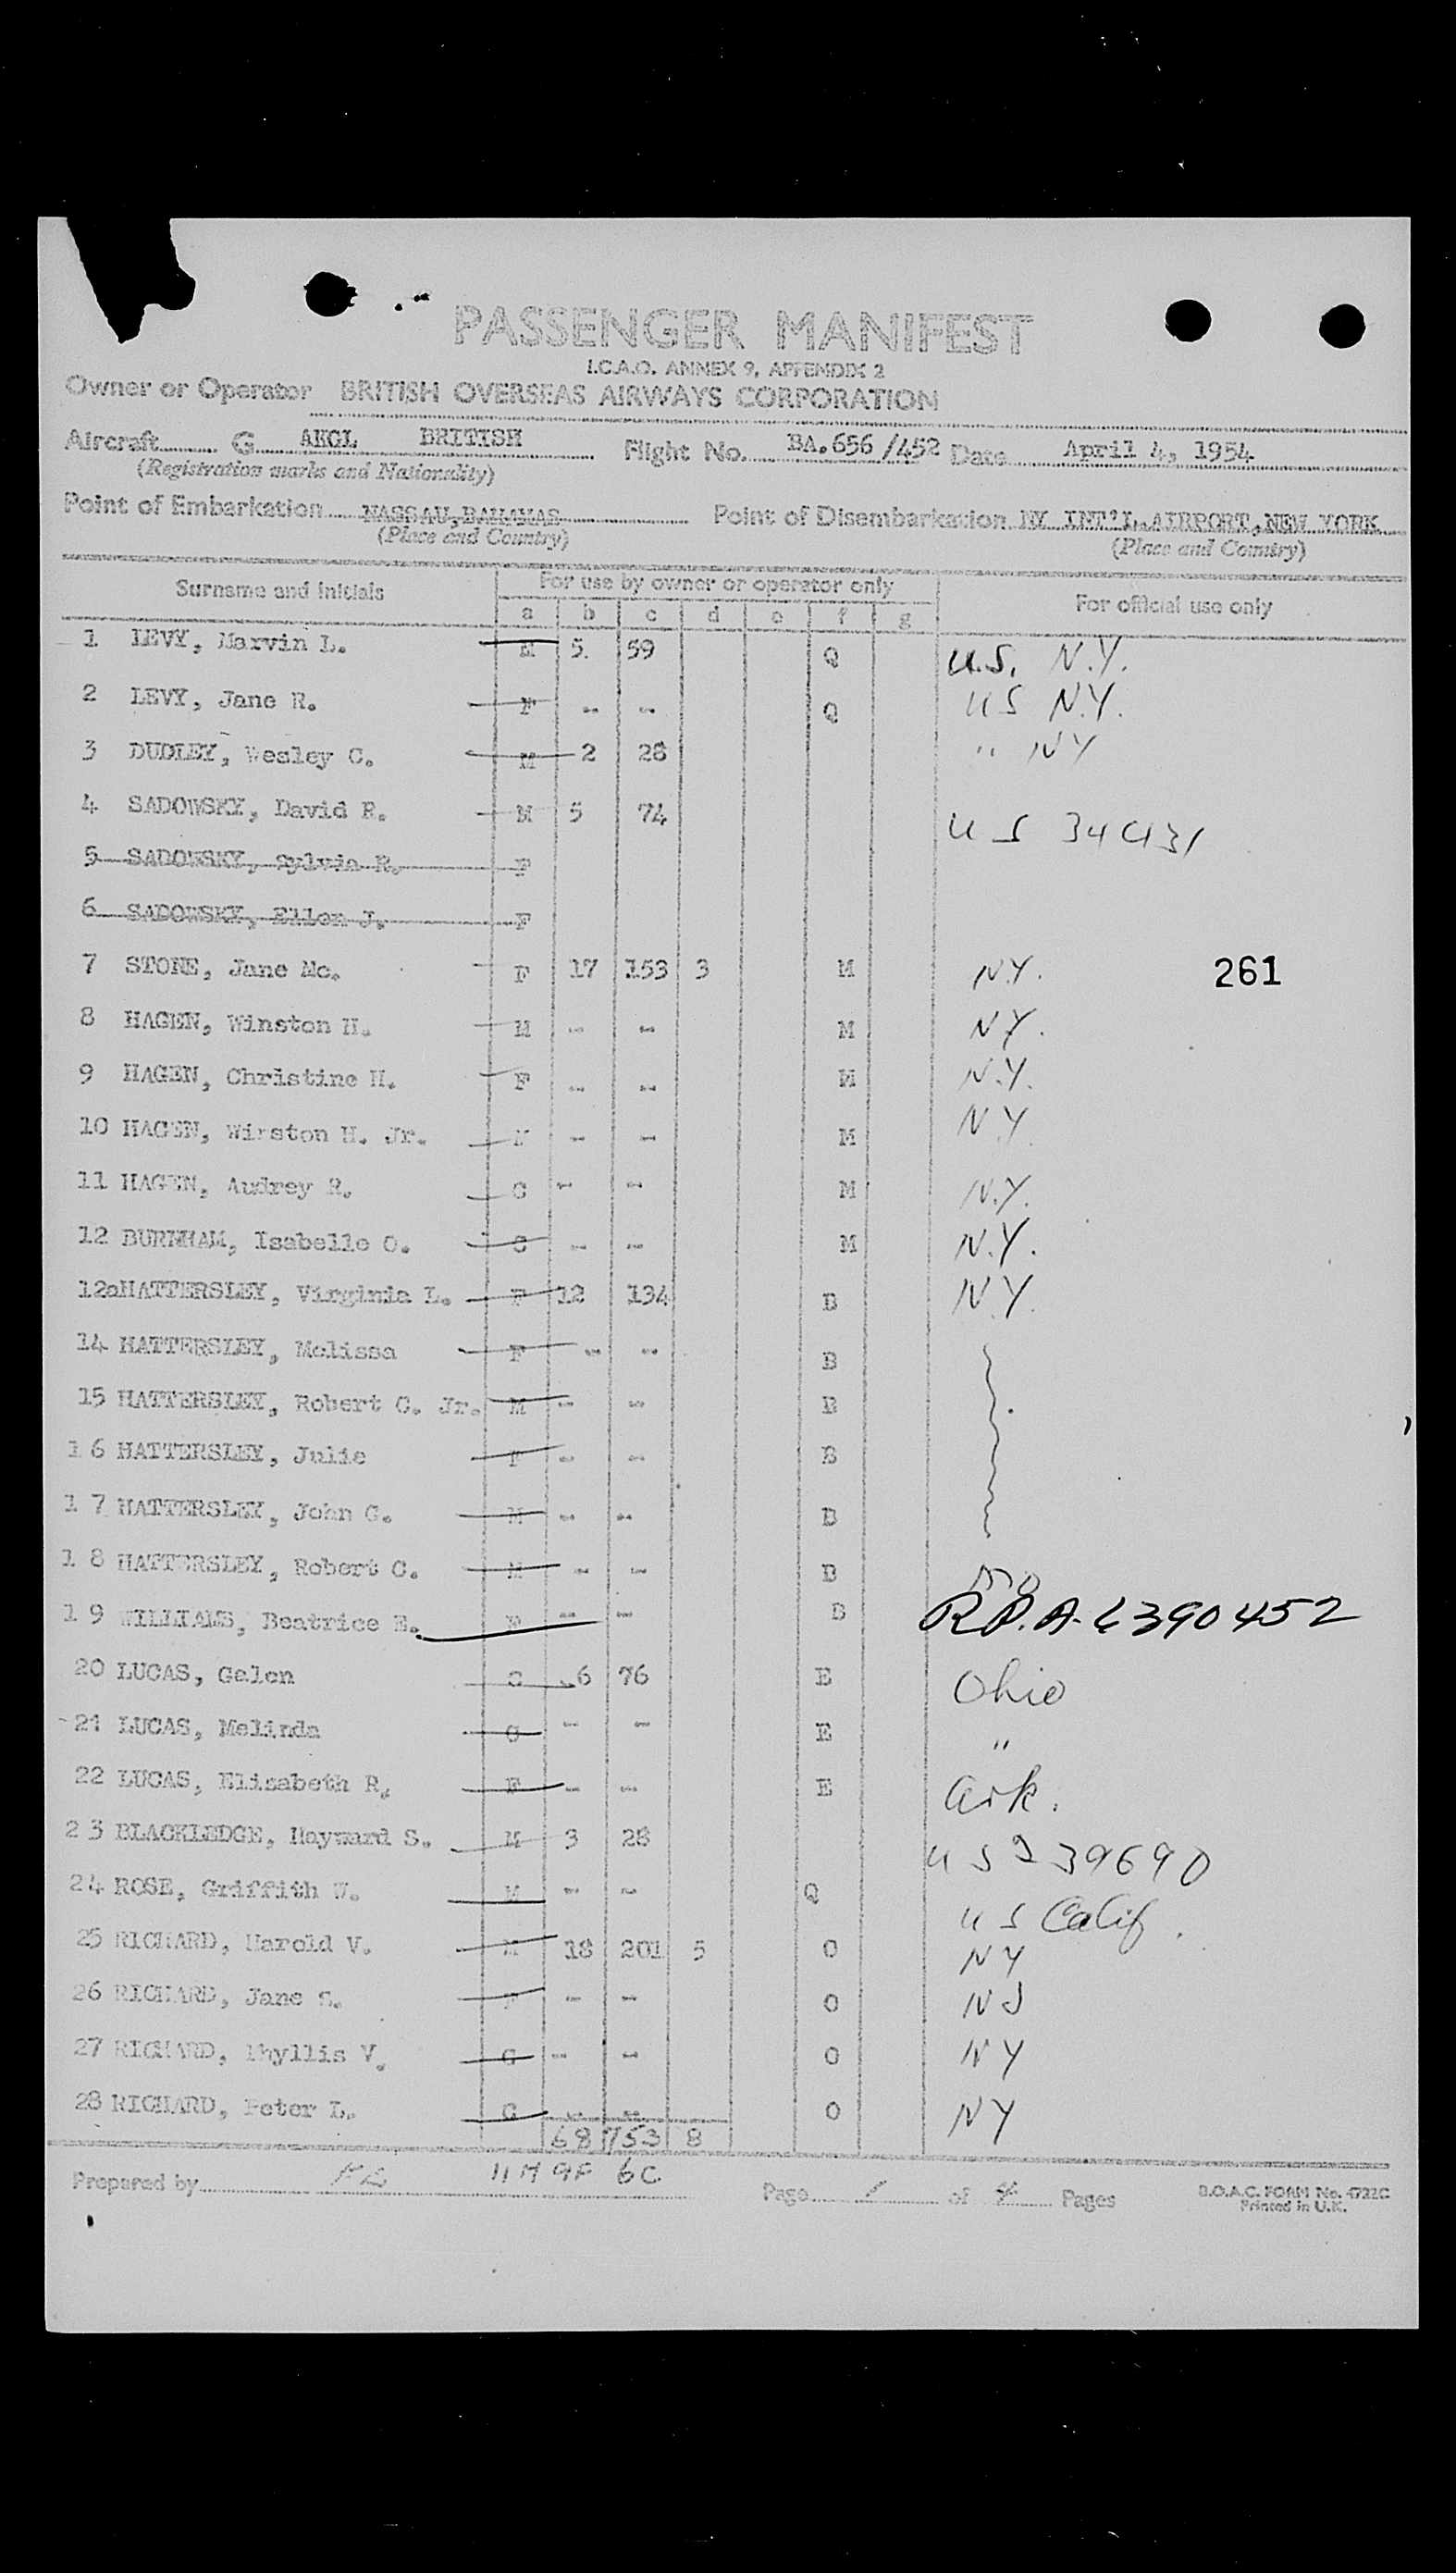 PASSENGER MANIFEST
I.C.A.O. ANNEX 9, APPENDIX 2
Owner or Operator BRITISH OVERSEAS AIRWAYS CORPORATION
Aircraft G AKGL BRITISH Flight No. BA.656/452 Date April 4, 1954
(Registration marks and Nationality)
Point of Embarkation NASSAU,BAHAMAS Point of Disembarkation NY INT'L.AIRPORT,NEW YORK
(Place and Country) (Place and Country)
Surname and initials For use by owner or operator only For official use only
a b c d e f g
1 LEVY, Marvin L. M 5. 59 Q U.S. N.Y.
2 LEVY, Jane R. F -- -- Q US N.Y.
3 DUDLEY, Wesley C. M 2 28 " NY
4 SADOWSKY, David R. M 5 74 US
5 SADOWSKY, Sylvia R. F
6 SADOWSKY, Ellen J. F
7 STONE, Jane Mc. F 17 153 3 M N.Y. 261
8 HAGEN, Winston H. M -- -- M N.Y.
9 HAGEN, Christine H. F -- -- M N.Y.
10 HAGEN, Winston H. Jr. M -- -- M N.Y.
11 HAGEN, Audrey R. C -- -- M N.Y.
12 BURNHAM, Isabelle O. C -- -- M N.Y.
12a HATTERSLEY, Virginia L. F 12 134 B N.Y.
14 HATTERSLEY, Melissa F -- -- B
15 HATTERSLEY, Robert C. Jr. M -- -- B
16 HATTERSLEY, Julie F -- -- B
17 HATTERSLEY, John G. M -- -- B
18 HATTERSLEY, Robert C. M -- -- B
19 WILLIAMS, Beatrice E. F -- -- B R.P.A-6390452
20 LUCAS, Galen C 6 76 E Ohio
21 LUCAS, Melinda C -- -- E "
22 LUCAS, Elisabeth R. F -- -- E Ark.
23 BLACKLEDGE, Hayward S. M 3 28 US 239690
24 ROSE, Griffith W. M -- -- Q US Calif.
25 RICHARD, Harold V. M 18 201 5 O NY
26 RICHARD, Jane S. F -- -- O NJ
27 RICHARD, Phyllis V. C -- -- O NY
28 RICHARD, Peter L. C -- -- O NY
68 753 8
Prepared by 11M 9F 6C Page 1 of 4 Pages B.O.A.C. FORM No. 4722C
Printed in U.K.